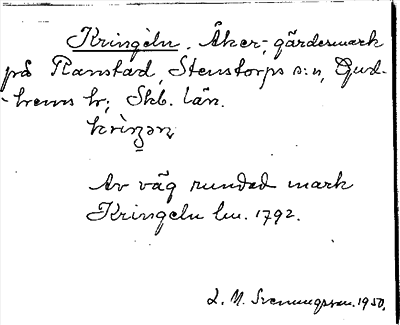 Kringeln. Åker-, gärdesmark
på Ranstad, Stenstorps s:n, Gud-
hems hr; Skb. län.
Av väg rundad mark
Kringeln lm. 1792.
L. M. Svenungsson. 1950.